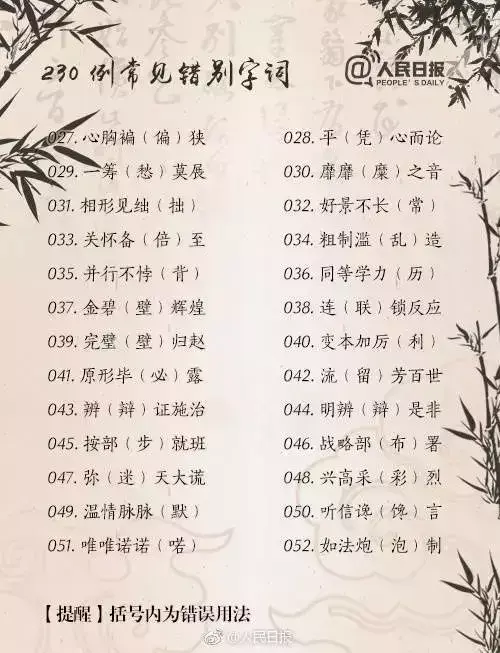 230 例常见错别字词
@人民日报
PEOPLE'S DAILY
027. 心胸褊（偏）狭
028. 平（凭）心而论
029. 一筹（愁）莫展
030. 靡靡（糜）之音
031. 相形见绌（拙）
032. 好景不长（常）
033. 关怀备（倍）至
034. 粗制滥（乱）造
035. 并行不悖（背）
036. 同等学力（历）
037. 金碧（壁）辉煌
038. 连（联）锁反应
039. 完璧（壁）归赵
040. 变本加厉（利）
041. 原形毕（必）露
042. 流（留）芳百世
043. 辨（辩）证施治
044. 明辨（辩）是非
045. 按部（步）就班
046. 战略部（布）署
047. 弥（迷）天大谎
048. 兴高采（彩）烈
049. 温情脉脉（默）
050. 听信谗（馋）言
051. 唯唯诺诺（喏）
052. 如法炮（泡）制
【提醒】括号内为错误用法
@人民日报